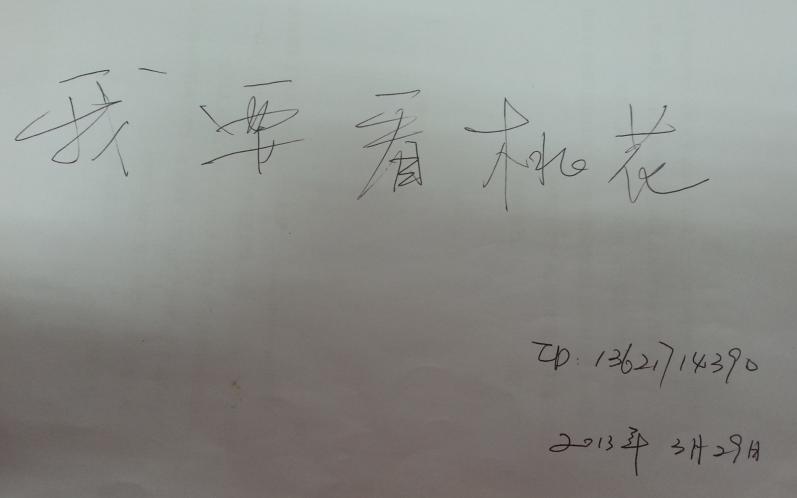 我要看桃花
ID: 13621714390
2013年 3月29日